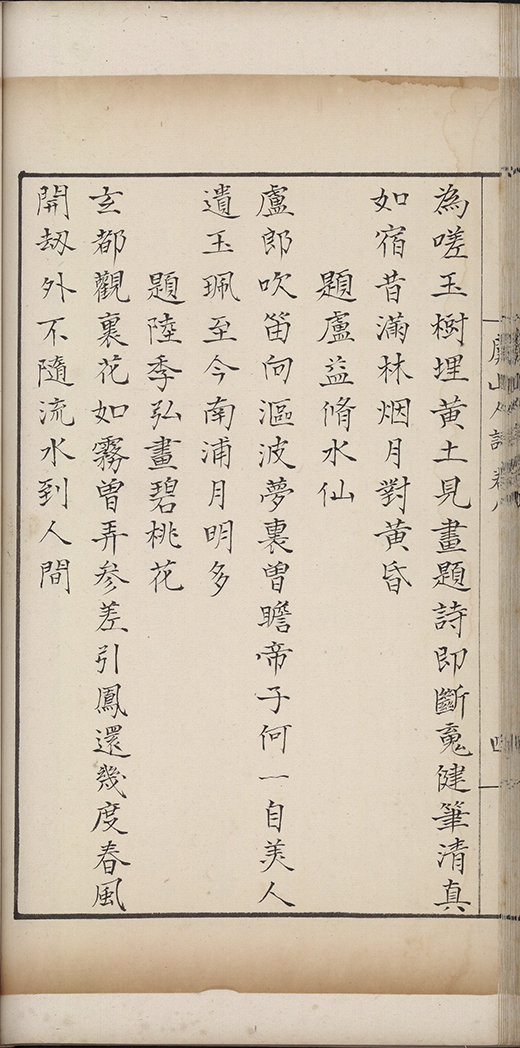 為嗟玉樹埋黄土見畫題詩即斷䰟健筆清真
如宿昔滿林烟月對黄昏
題盧益脩水仙
盧郎吹笛向漚波夢裏曽瞻帝子何一自美人
遺玉珮至今南浦月明多
題陸季弘畫碧桃花
玄都觀裏花如霧曽弄参差引鳳還幾度春風
開劫外不隨流水到人間